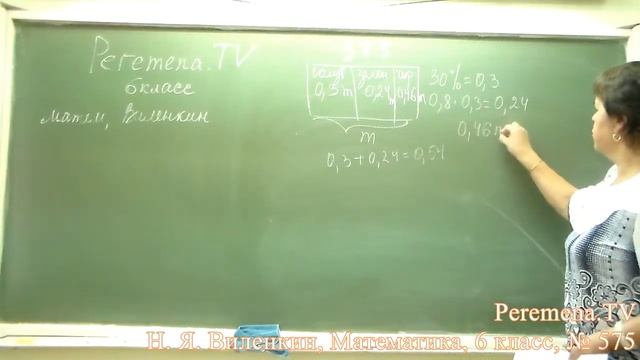 Peremena.TV
6 класс
матем, Виленкин
575
голуб зелен кр
0,3 m 0,24 m 0,46 m
m
0,3+0,24=0,54
30%=0,3
0,8·0,3=0,24
0,46 m
Peremena.TV
Н. Я. Виленкин, Математика, 6 класс, № 575